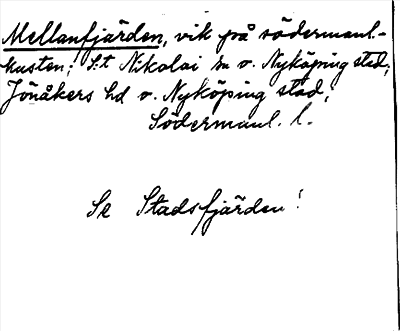 Mellanfjärden, vik på södermanl.-
kusten; S:t Nikolai sn o. Nyköping stad;
Jönåkers hd o. Nyköping stad,
Södermanl. l.
Se Stadsfjärden!